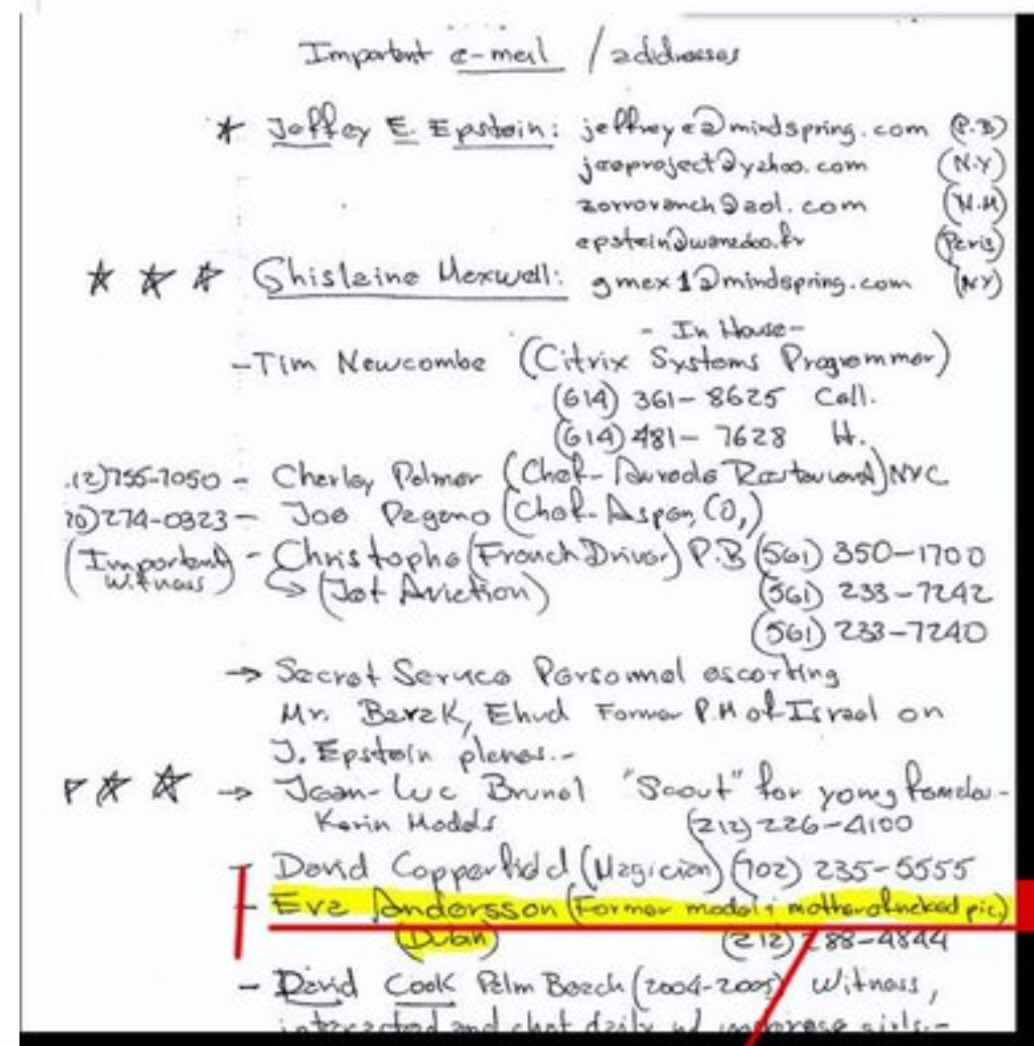 Important e-mail / addresses
* Jeffrey E. Epstein: jeffreye@mindspring.com (P.B)
jeeproject@yahoo.com (N.Y)
zorroranch@aol.com (N.M)
epstein@wanadoo.fr (Paris)
Ghislaine Maxwell: gmax1@mindspring.com (NY)
- In House -
-Tim Newcombe (Citrix Systems Programmer)
(614) 361-8625 Cell.
(614) 481-7628 H.
.12)755-7050 - Charley Palmer (Chef- Aureole Restaurant) NYC
70)274-0323 - Joe Pagano (Chef- Aspen, CO,)
(Important Witness) - Christophe (French Driver) P.B (561) 350-1700
(Jet Aviation) (561) 233-7242
(561) 233-7240
→ Secret Service Personnel escorting
Mr. Barak, Ehud Former P.M of Israel on
J. Epstein planes.-
→ Jean-Luc Brunel "Scout" for young females-
Karin Models (212) 226-4100
- David Copperfield (Magician) (702) 235-5555
- Eva Andersson (Former model & mother of naked pic)
(Dubin) (212) 288-4844
- David Cook Palm Beach (2004-2005) Witness,
interacted and chat daily w/ underage girls.-